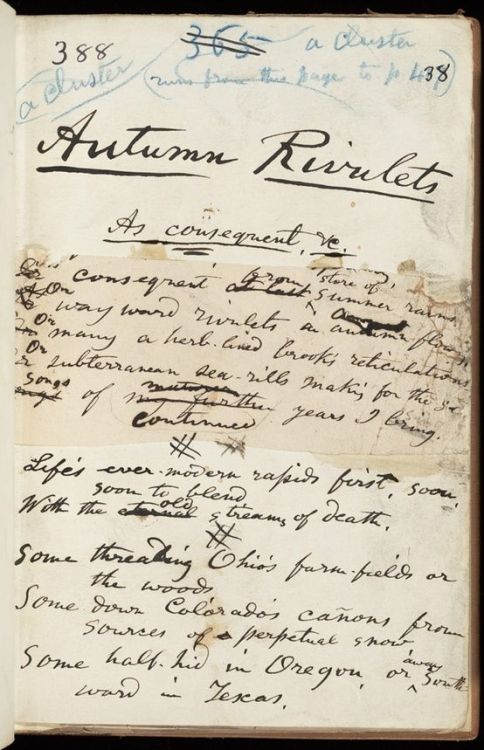 388
365
a cluster
a cluster
(runs from this page to p 47)
38
Autumn Rivulets
As consequent, &c.
consequent from store of summer rains,
Or wayward rivulets in autumn flowing
Or many a herb-lined brook's reticulations
Or subterranean sea-rills making for the sea
Songs of continued years I bring.
Life's ever-modern rapids first, soon,
soon to blend
With the old streams of death.
Some threading Ohio's farm-fields or
the woods
Some down Colorado's cañons from
sources of perpetual snow
Some half-hid in Oregon, or away South-
ward in Texas,